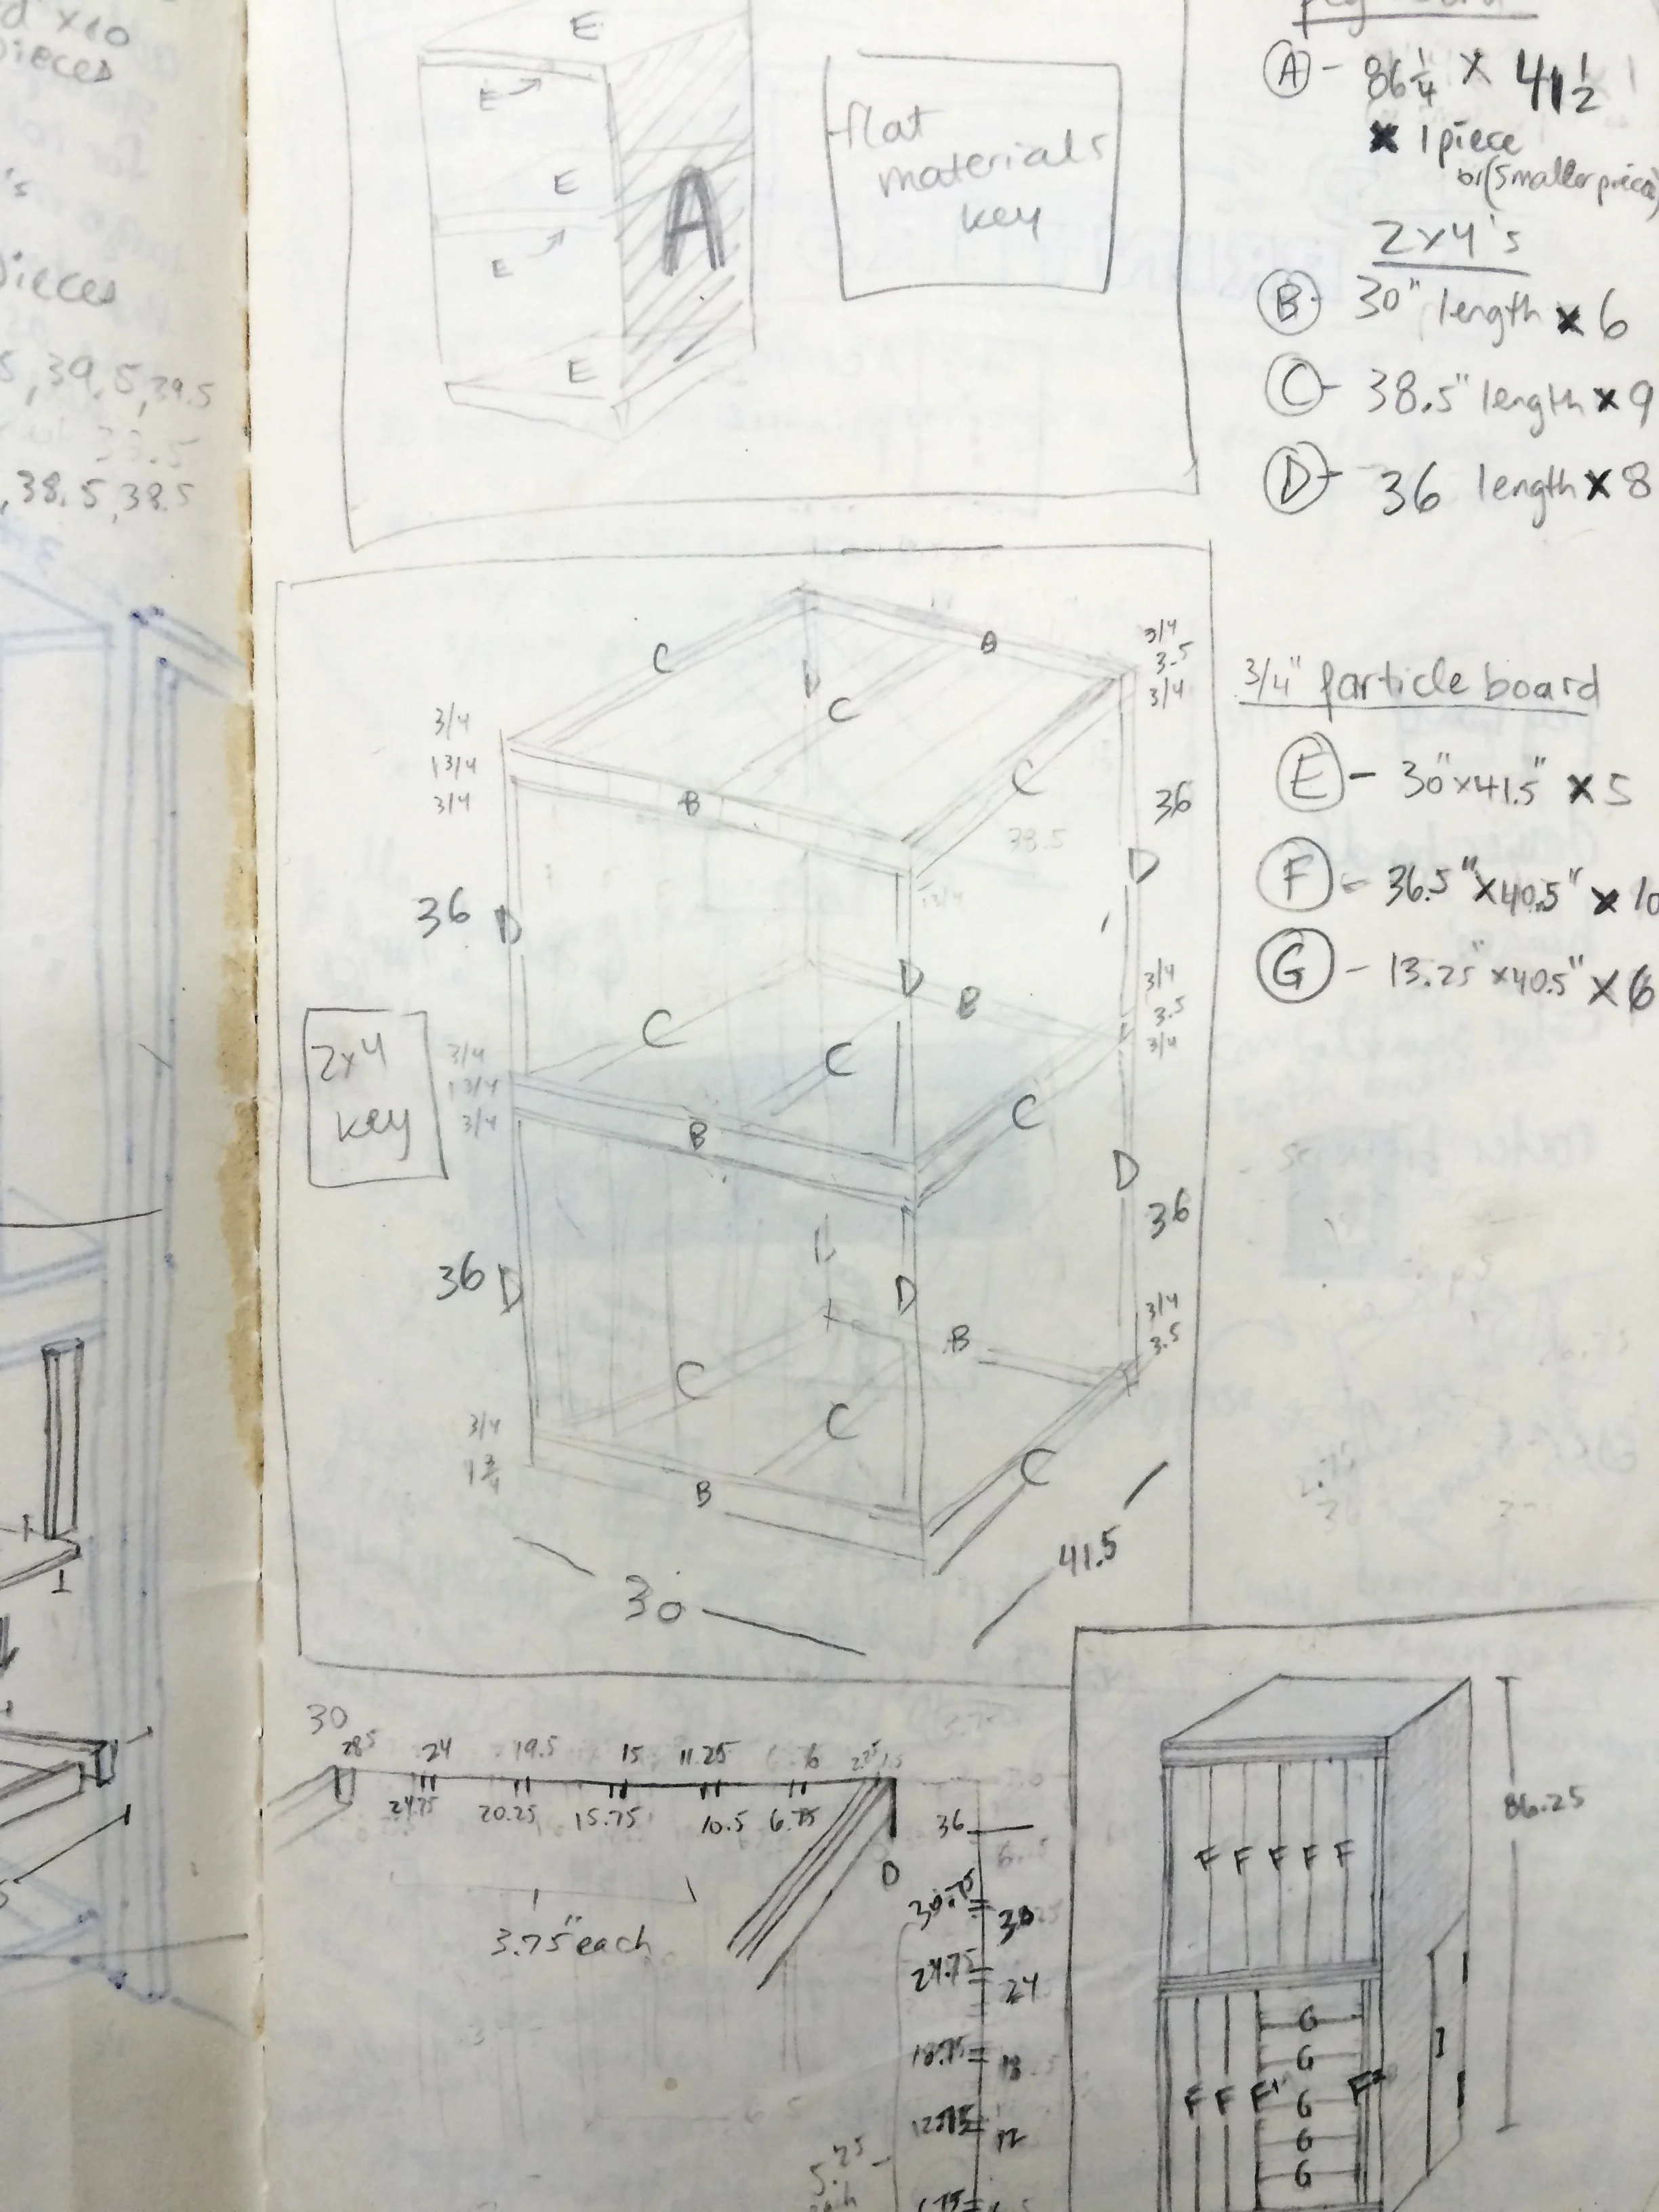 x10
pieces
's
pieces
, 39.5, 39.5
, 38.5, 38.5
E
E
E
E
E
A
flat
materials
key
A - 86 1/4 x 41 1/2
x 1 piece
or (smaller pieces)
2x4's
B 30" length x 6
C - 38.5" length x 9
D - 36 length x 8
3/4" particle board
E - 30" x 41.5" x 5
F - 36.5" x 40.5" x 10
G - 13.25" x 40.5" x 6
2x4
key
3/4
3.5
3/4
C
B
D
C
3/4
1 3/4
3/4
B
C
38.5
36
D
1 3/4
36 D
D
B
3/4
3.5
3/4
C
C
3/4
1 3/4
3/4
B
C
D
36
D
36 D
D
3/4
3.5
B
C
C
3/4
1 3/4
B
C
30
41.5
30
28.5 24 19.5 15 11.25 6 2.25 1.5
24.75 20.25 15.75 10.5 6.75
D
3.75" each
36
30.75 30
24.75 24
18.75 18
12.75 12
6.75
5.25
each
86.25
F F F F F
G
G
F F F G F
G
G